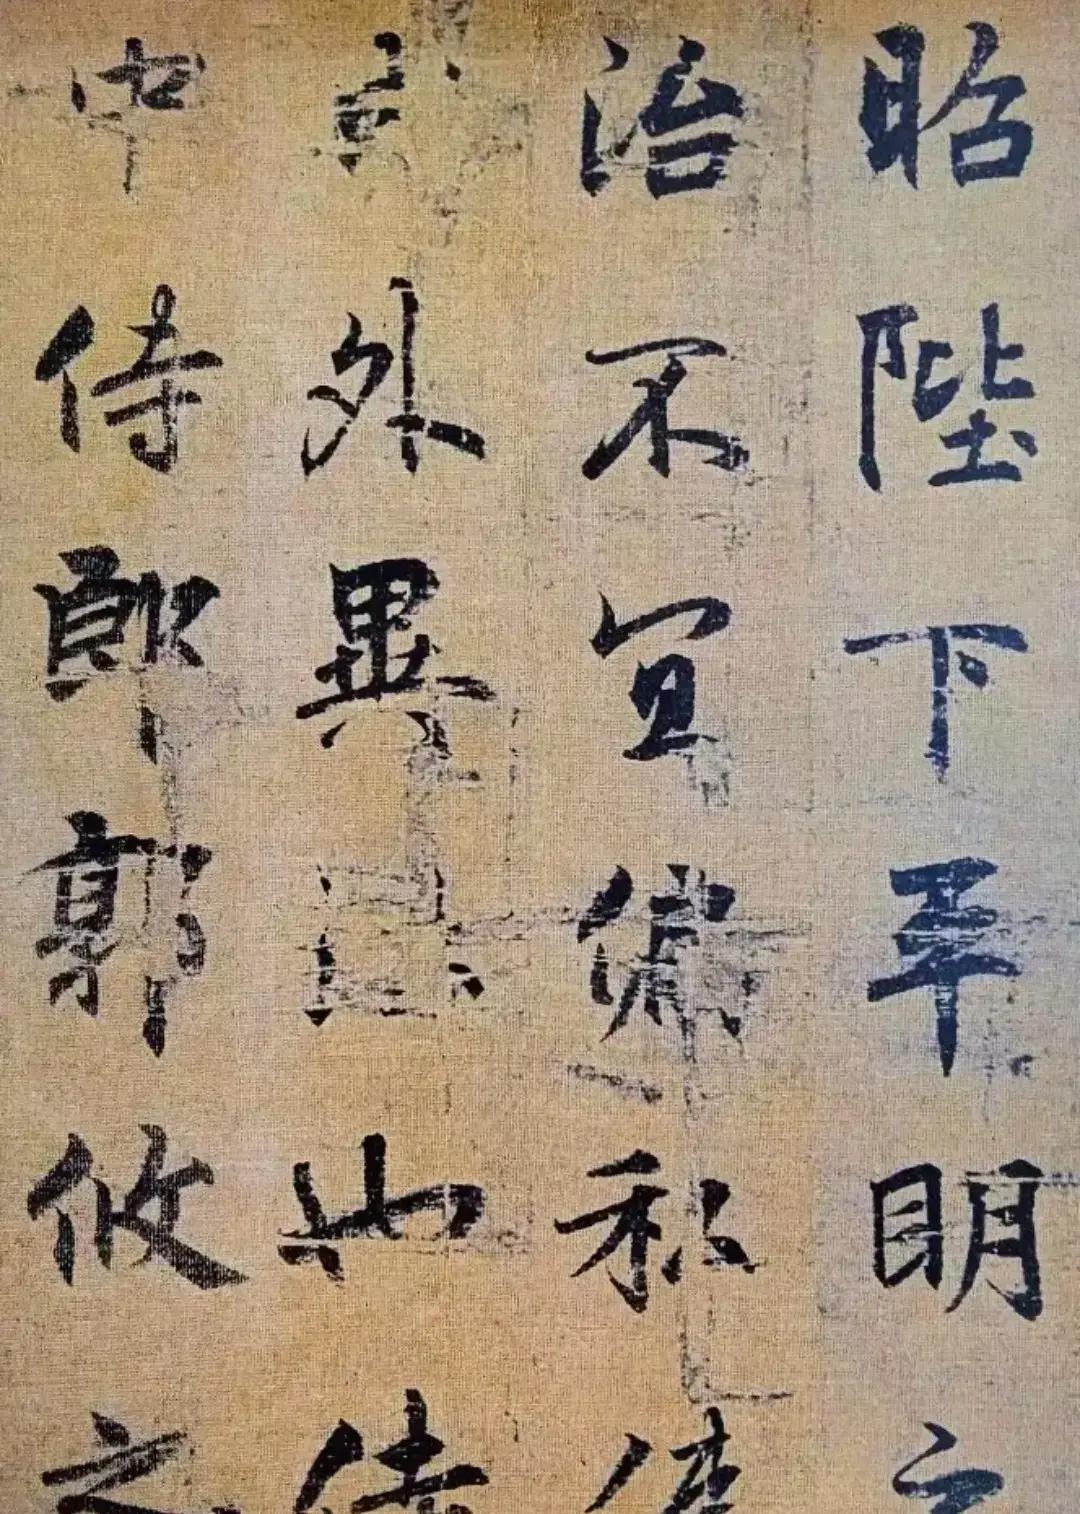 昭陛下平明之
治不宜偏私使
外異也侍
中侍郎郭攸之